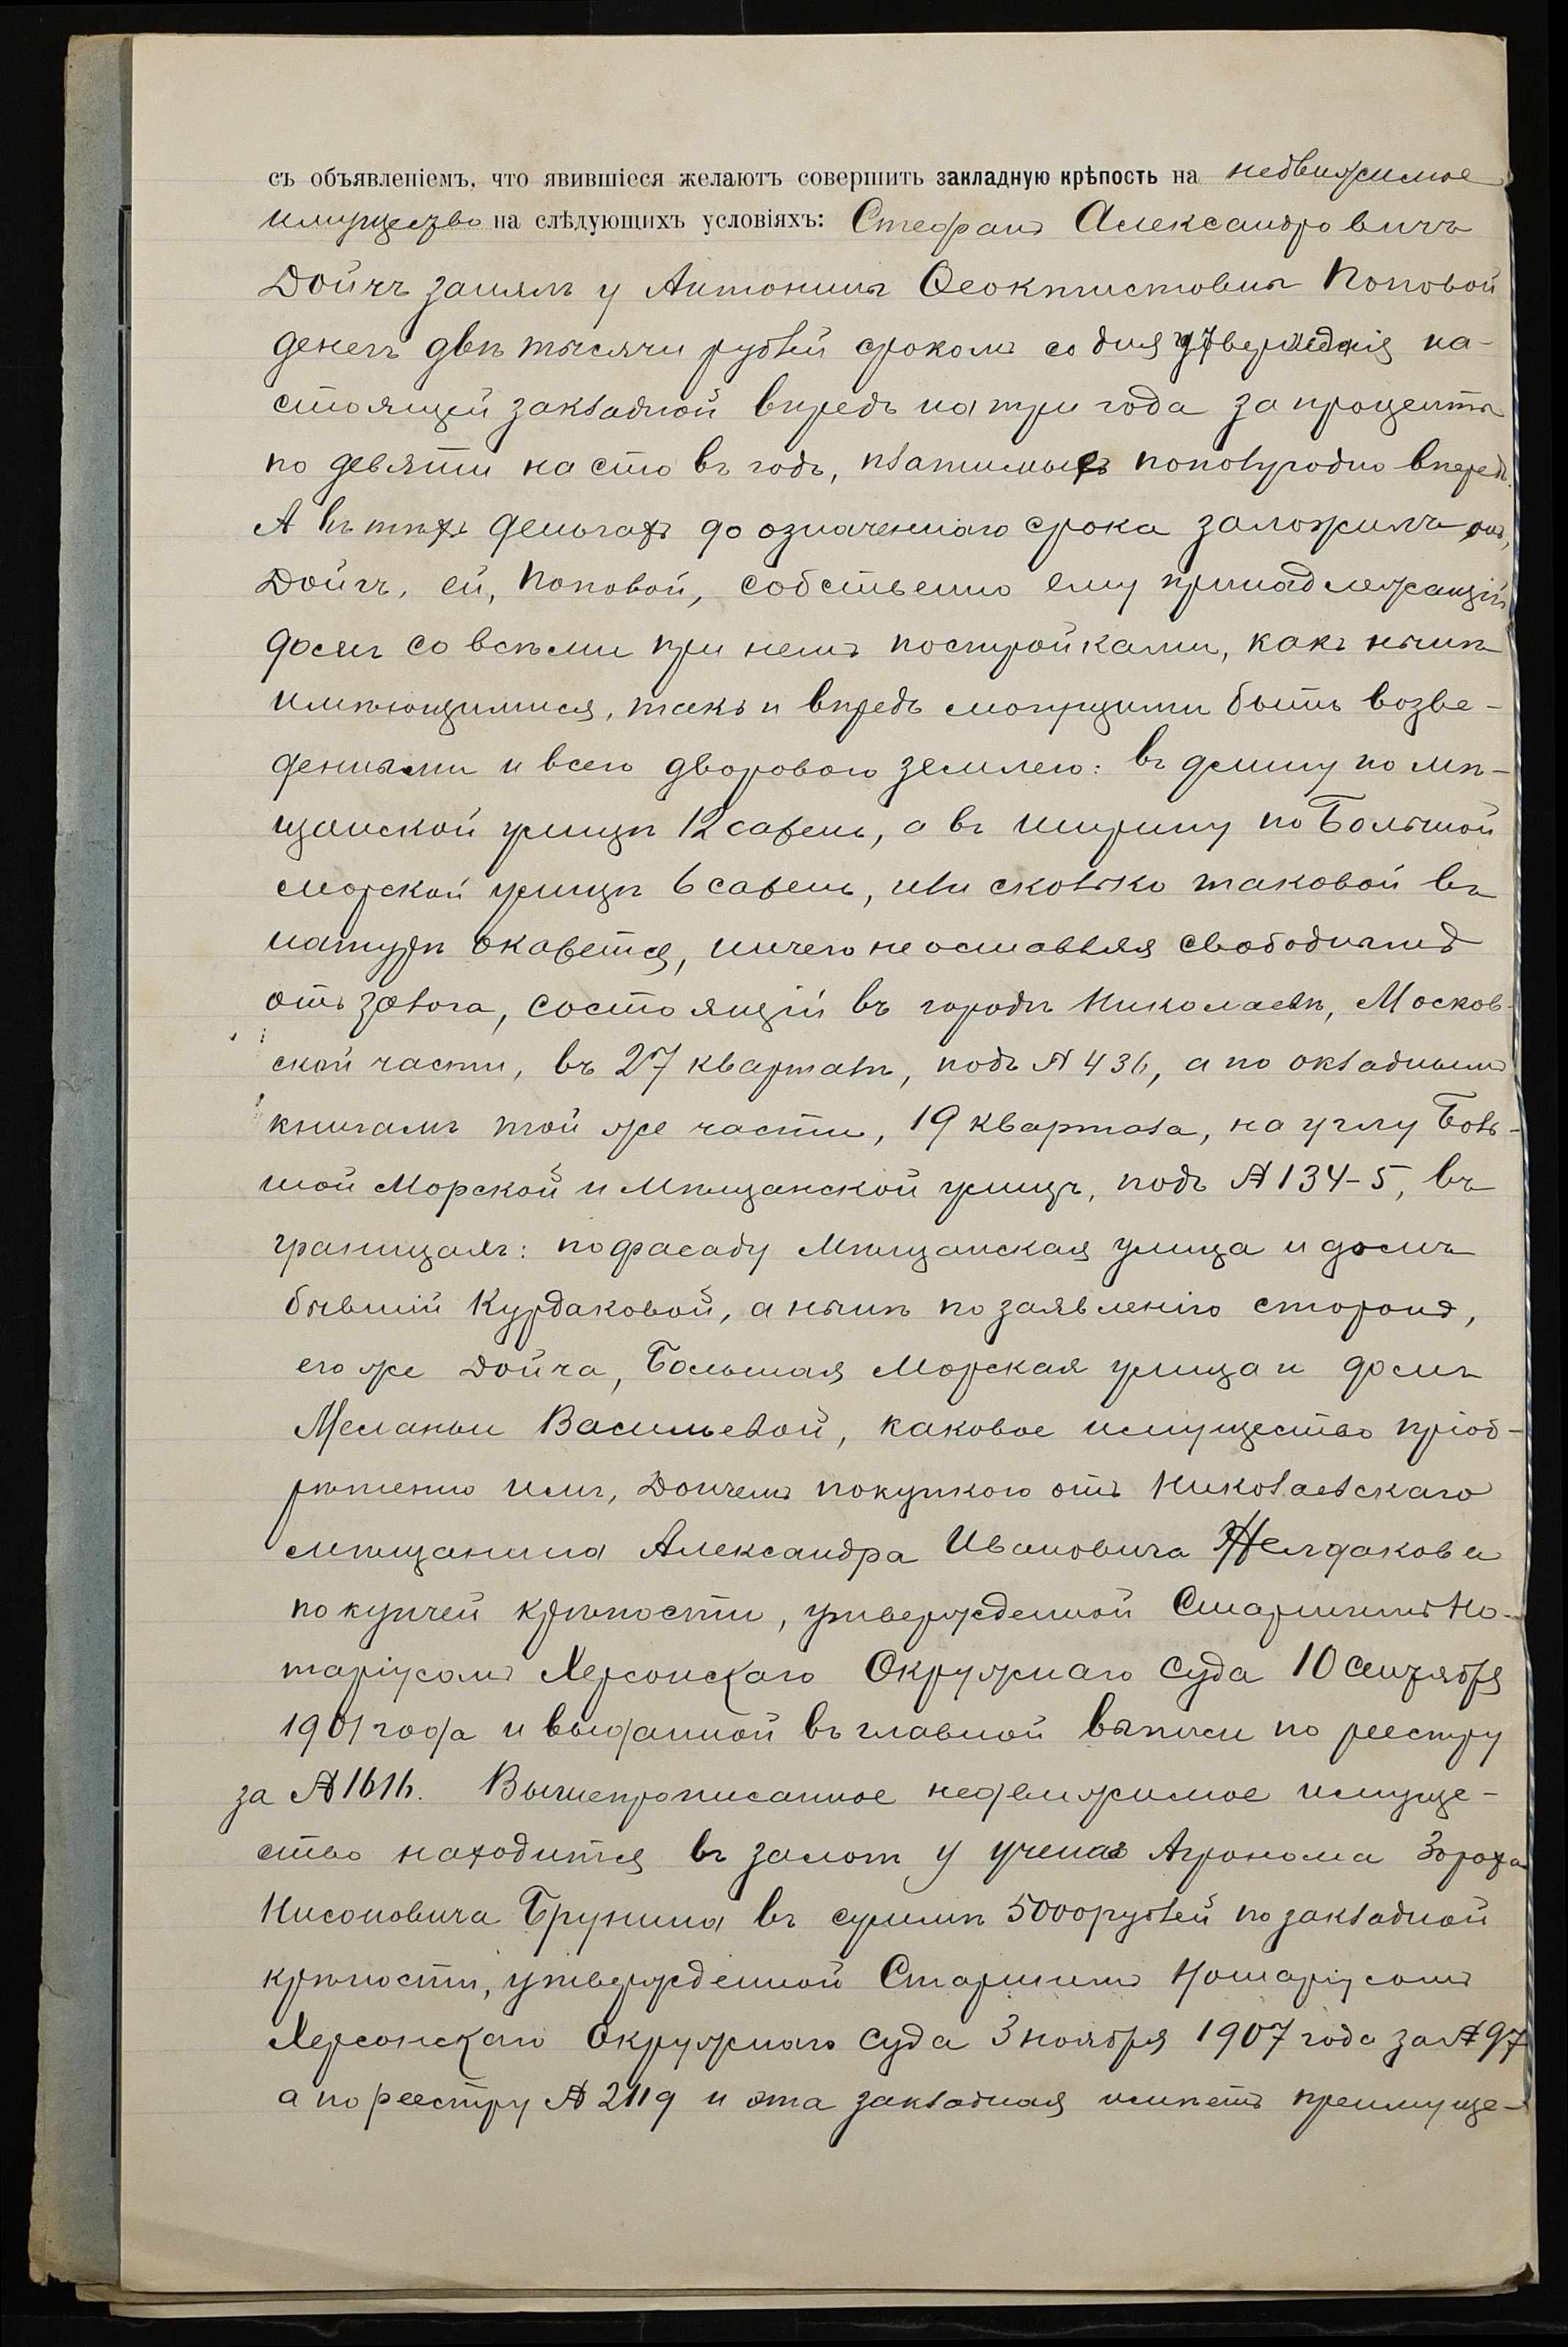 съ объявленіемъ, что явившіеся желаютъ совершить закладную крѣпость на недвижимое
имущество на слѣдующихъ условіяхъ: Стефанъ Александровичъ
Дойчъ занялъ у Антонины Ѳеоктистовны Поповой
денегъ двѣ тысячи рублей срокомъ со дня утвержденія на-
стоящей закладной впредь на три года за проценты
по девяти на сто въ годъ, платимыхъ пополугодно впередъ.
А въ тѣхъ деньгахъ до означеннаго срока заложилъ онъ,
Дойчъ, ей, Поповой, собственно ему принадлежащій
домъ со всѣми при немъ постройками, какъ нынѣ
имѣющимися, такъ и впредь могущими быть возве-
денными и всею дворовою землею: въ длину по Мѣ-
щанской улицѣ 12 сажень, а въ ширину по Большой
Морской улицѣ 6 сажень, или сколько таковой въ
натурѣ окажется, ничего не оставляя свободнымъ
отъ залога, состоящій въ городѣ Николаевѣ, Москов-
ской части, въ 27 кварталѣ, подъ № 436, а по окладнымъ
книгамъ той же части, 19 квартала, на углу Боль-
шой Морской и Мѣщанской улицъ, подъ № 134-5, въ
границахъ: по фасаду Мѣщанская улица и домъ
бывшій Курдаковой, а нынѣ по заявленію сторонъ,
его же Дойча, Большая Морская улица и домъ
Меланьи Васильевой, каковое имущество пріоб-
рѣтено имъ, Дойчемъ покупкою отъ Николаевскаго
мѣщанина Александра Ивановича Желдакова
по купчей крѣпости, утвержденной Старшимъ Но-
таріусомъ Херсонскаго Окружнаго Суда 10 Сентября
1901 года и выданной въ главной выписи по реестру
за № 1616. Вышепрописанное недвижимое имуще-
ство находится въ залогѣ у ученаго Агронома Зораха
Нисоновича Брунина въ суммѣ 5000 рублей по закладной
крѣпости, утвержденной Старшимъ Нотаріусомъ
Херсонскаго Окружнаго Суда 3 ноября 1907 года за № 97
а по реестру № 2119 и эта закладная имѣетъ преимуще-